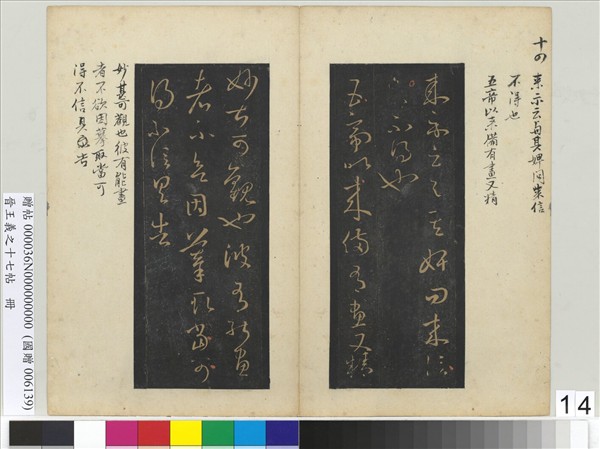 十四
来示云与其婢问来信
不得也
五帝以来備有畫又精
来示云与其婢问来信
不得也
五帝以来備有畫又精
妙甚可觀也彼有能畫
者不欲因摹取當可
得不信具告
妙甚可觀也彼有能畫
者不欲因摹取當可
得不信具告
贈帖 000036N000000000 (國贈 006139)
晉王羲之十七帖 冊
14